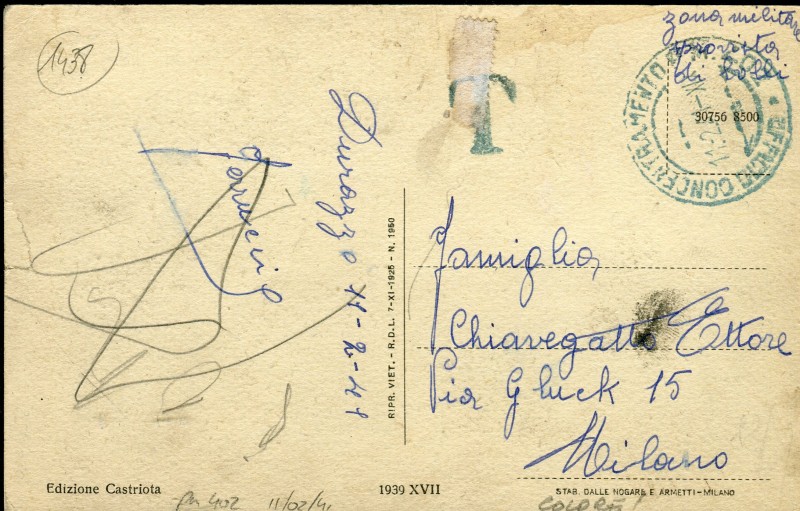 1438
zona militare
sprovista
di bolli
T
30756 8500
UFFICIO CONCENTRAMENTO P.M.
Durazzo 11-2-41
RIPR. VIET. - R.D.L. 7-XI-1925 - N. 1950
Famiglia
Chiavegatto Ettore
Via Gluck 15
Milano
Edizione Castriota
1939 XVII
STAB. DALLE NOGARE E ARMETTI - MILANO
pm 402
11/02/41